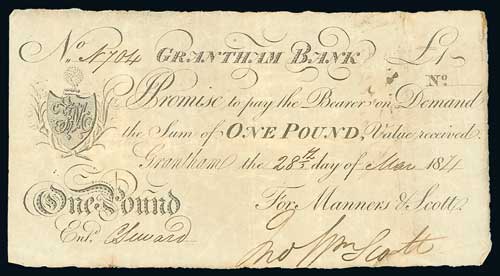 No. N704 GRANTHAM BANK £1
No.
I Promise to pay the Bearer on Demand
the Sum of ONE POUND, Value received
Grantham the 28th day of Mar 1814
One Pound For Manners & Scott
Entd. C Seward
Scott